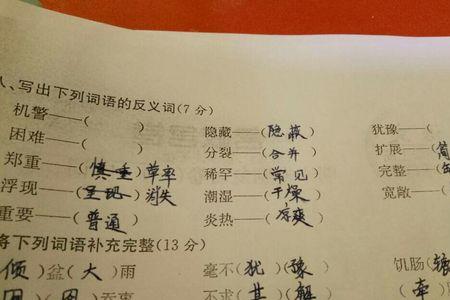 、写出下列词语的反义词(7 分)
机警——(      )
困难——(      ) 隐藏——(隐藏) 犹豫——(
郑重——(慎重)草率 分裂——(合并) 扩展——(简
浮现——(呈现)消失 稀罕——(常见) 完整——(
重要——(普通) 潮湿——(干燥) 宽敞——(
炎热——(凉爽)
将下列词语补充完整(13 分)
倾)盆(大)雨 毫不(犹)(豫) 饥肠(辘
)吞枣 不求(其)(